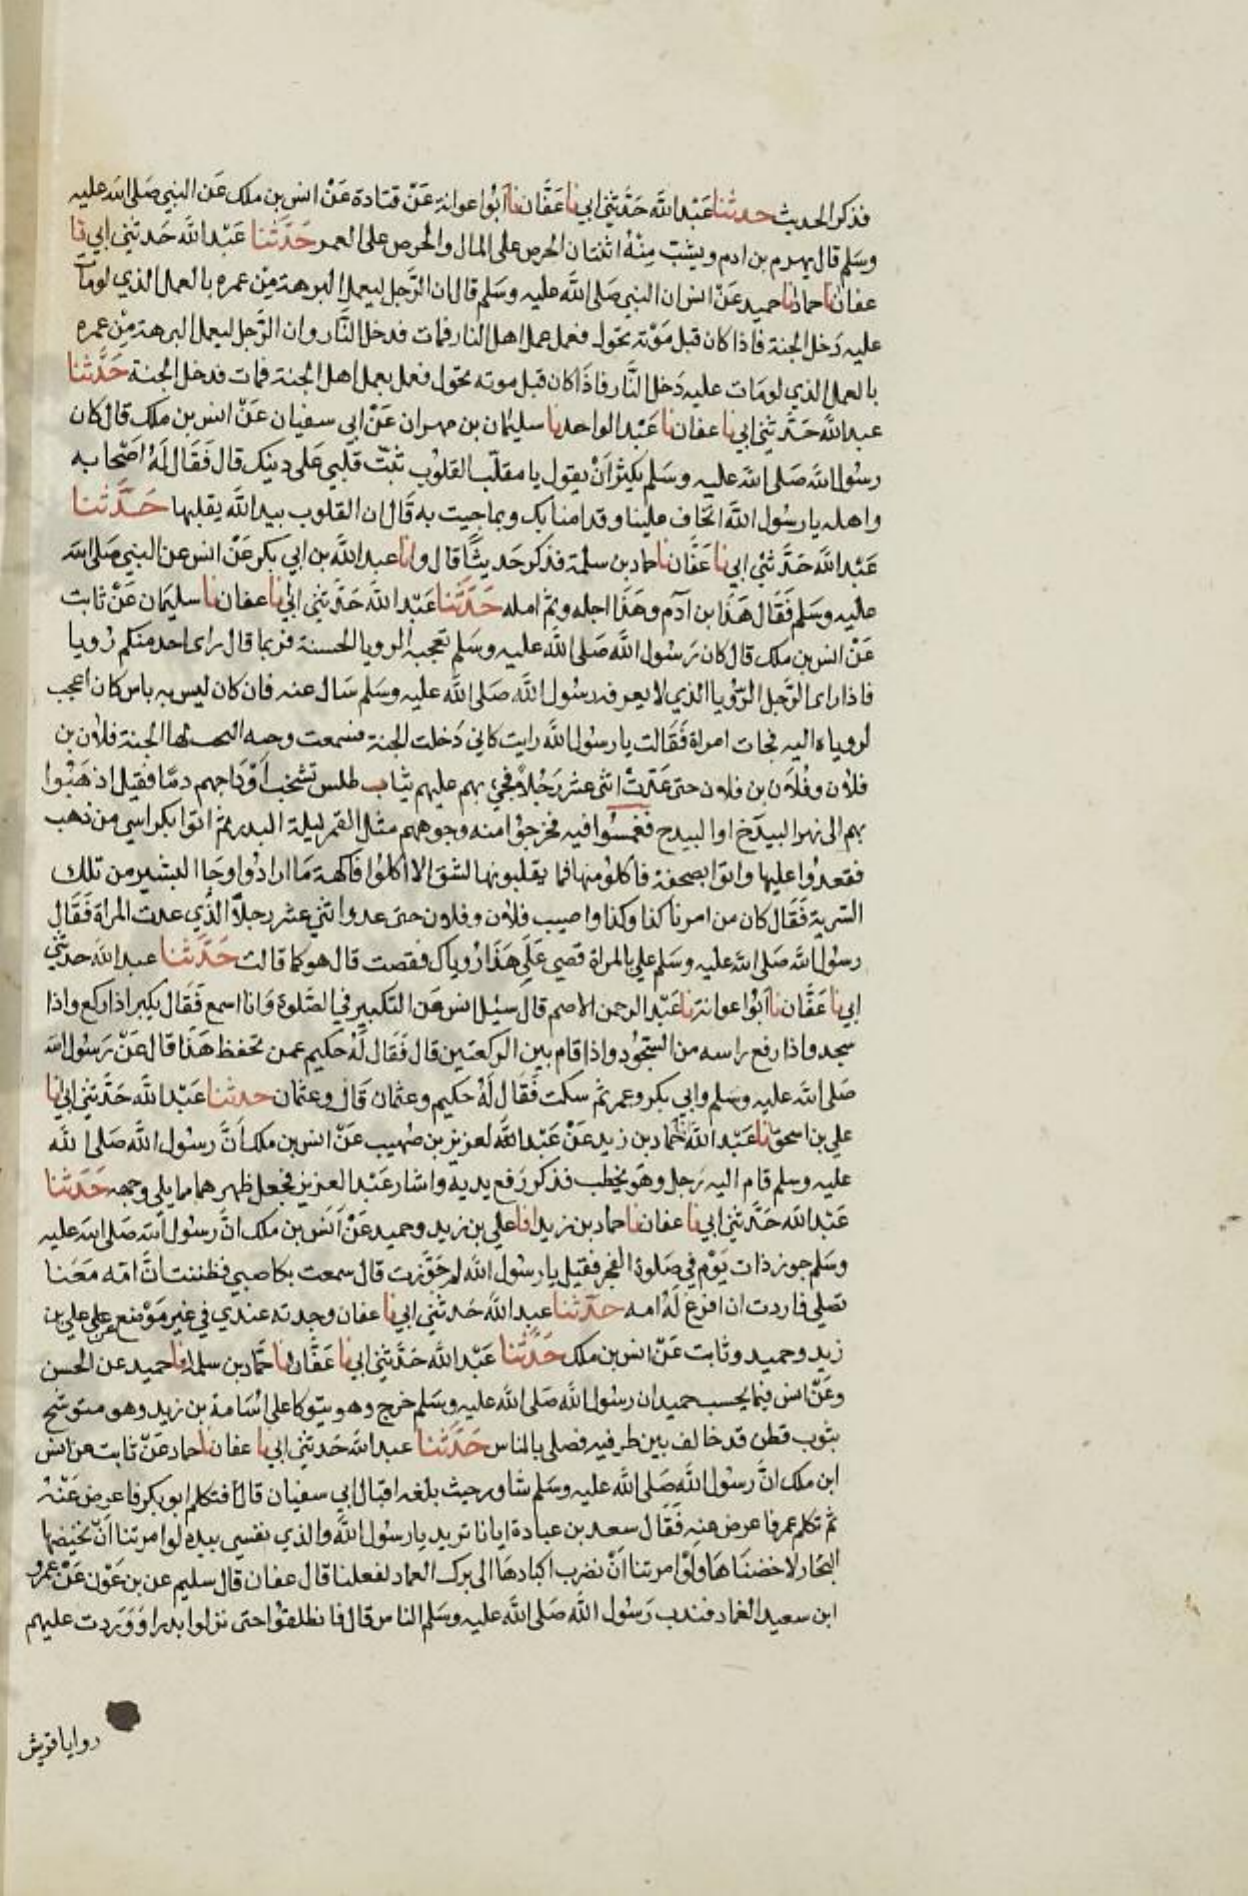 فذكر الحديث حدثنا عبد الله حدثني ابي نا عفان نا ابوا عوانة عن قتادة عن انس بن ملك عن النبي صلى الله عليه
وسلم قال يهرم بن ادم ويشب منه اثنتان الحرص على المال والحرص على العمر حدثنا عبد الله حدثني ابي نا
عفان نا حماد نا حميد عن انس ان النبي صلى الله عليه وسلم قال ان الرجل ليعمل البرهة من عمره بالعمل الذي لومات
عليه دخل الجنة فاذا كان قبل موته تحول فعمل عمل اهل النار فمات فدخل النار وان الرجل ليعمل البرهة من عمره
بالعمل الذي لومات عليه دخل النار فاذا كان قبل موته تحول فعمل بعمل اهل الجنة فمات فدخل الجنة حدثنا
عبد الله حدثني ابي نا عفان نا عبد الواحد نا سليمان بن مهران عن ابي سفيان عن انس بن ملك قال كان
رسول الله صلى الله عليه وسلم يكثر ان يقول يا مقلب القلوب ثبت قلبي على دينك قال فقال له اصحابه
واهله يا رسول الله اتخاف علينا وقد امنا بك وبما جيت به قال ان القلوب بيد الله يقلبها حدثنا
عبد الله حدثني ابي نا عفان نا حماد بن سلمة فذكر حديثا قال وانا عبد الله بن ابي بكر عن انس عن النبي صلى الله
عليه وسلم فقال هذا بن آدم وهذا اجله وثم امله حدثنا عبد الله حدثني ابي نا عفان نا سليمان عن ثابت
عن انس بن ملك قال كان رسول الله صلى الله عليه وسلم تعجبه الرويا الحسنة فربما قال راى احد منكم رويا
فاذا راى الرجل الرؤيا الذي لا يعرفه رسول الله صلى الله عليه وسلم سال عنه فان كان ليس به باس كان اعجب
لروياه اليه فجات امراة فقالت يا رسول الله رايت كاني دخلت الجنة فسمعت وجبه لها الجنة فلان بن
فلان وفلان بن فلان حتى عدت اثني عشر رجلا فجيء بهم عليهم ثياب طلس تشخب اوداجهم دما فقيل اذهبوا
بهم الى نهر البيدخ اوا لبيدح فغمسوا فيه فخرجوا منه وجوههم مثل القمر ليلة البدر ثم اتوا بكراسي من ذهب
فقعدوا عليها واتوا بصحفة فاكلوا منها فما يقلبونها لشق الا اكلوا فاكهة ما ارادوا وجا البشير من تلك
السرية فقال كان من امرنا كذا وكذا واصيب فلان وفلان حتى عدوا اثني عشر رجلا الذي عدت المراة فقال
رسول الله صلى الله عليه وسلم علي بالمراة قصي على هذا روياك فقصت قال هو كما قالت حدثنا عبد الله حدثني
ابي نا عفان نا ابوا عوانة نا عبد الرحمن الاصم قال سئل انس عن التكبير في الصلوة وانا اسمع فقال يكبر اذا ركع واذا
سجد واذا رفع راسه من السجود واذا قام بين الركعتين قال فقال له حكيم عمن تحفظ هذا قال عن رسول الله
صلى الله عليه وسلم وابي بكر وعمر ثم سكت فقال له حكيم وعثمان قال وعثمان حدثنا عبد الله حدثني ابي نا
علي بن اسحق نا عبد الله نا حماد بن زيد عن عبد الله لعزيز بن صهيب عن انس بن ملك ان رسول الله صلى الله
عليه وسلم قام اليه رجل وهو يخطب فذكر رفع يديه واشار عبد العزيز فجعل ظهرهما مما يلي وجهه حدثنا
عبد الله حدثني ابي نا عفان نا حماد بن زيد انا علي بن زيد وحميد عن انس بن ملك ان رسول الله صلى الله عليه
وسلم جوز ذات يوم في صلوة الفجر فقيل يا رسول الله لم جوزت قال سمعت بكا صبي فظننت ان امه معنا
تصلي فاردت ان افرغ له امه حدثنا عبد الله حدثني ابي نا عفان وجدته عندي في غير موضع عن علي بن
زيد وحميد وثابت عن انس بن ملك حدثنا عبد الله حدثني ابي نا عفان نا حماد بن سلمة انا حميد عن الحسن
وعن انس فيما يحسب حميد ان رسول الله صلى الله عليه وسلم خرج وهو يتوكا على اسامة بن زيد وهو متوشح
بثوب قطن قد خالف بين طرفيه فصلى بالناس حدثنا عبد الله حدثني ابي نا عفان نا حماد عن ثابت عن انس
ابن ملك ان رسول الله صلى الله عليه وسلم شاور حيث بلغه اقبال ابي سفيان قال فتكلم ابو بكر فاعرض عنه
ثم تكلم عمر فاعرض عنه فقال سعد بن عبادة ايانا تريد يا رسول الله والذي نفسي بيده لو امرتنا ان نخيضها
البحار لاخضناها ولو امرتنا ان نضرب اكبادها الى برك العماد لفعلنا قال عفان قال سليم عن بن عون عن عمرو
ابن سعيد الغماد فندب رسول الله صلى الله عليه وسلم الناس قال فانطلقوا حتى نزلوا بدرا ووردت عليهم
روايا قريش